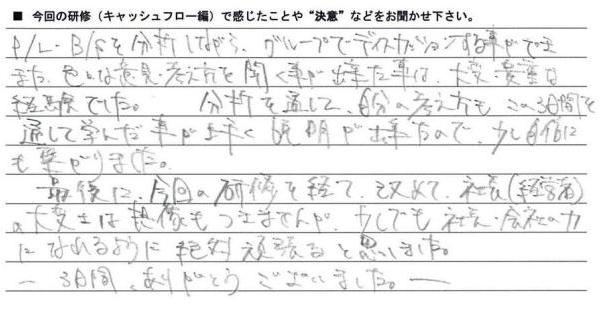 ■ 今回の研修（キャッシュフロー編）で感じたことや“決意”などをお聞かせ下さい。
P/L・B/Sを分析しながら、グループでディスカッションする事ができ
また、色々な意見・考え方を聞く事が出来た事は、大変貴重な
経験でした。 分析を通して、自分の考え方も この3日間を
通して学んだ事が上手く説明が出来たので、少し自信に
も繋がりました。
最後に、今回の研修を経て、改めて、社長（経営者）
の大変さは想像もつきませんが、少しでも社長・会社の力
になれるように絶対頑張ると思いました。
ー 3日間、ありがとうございました。ー